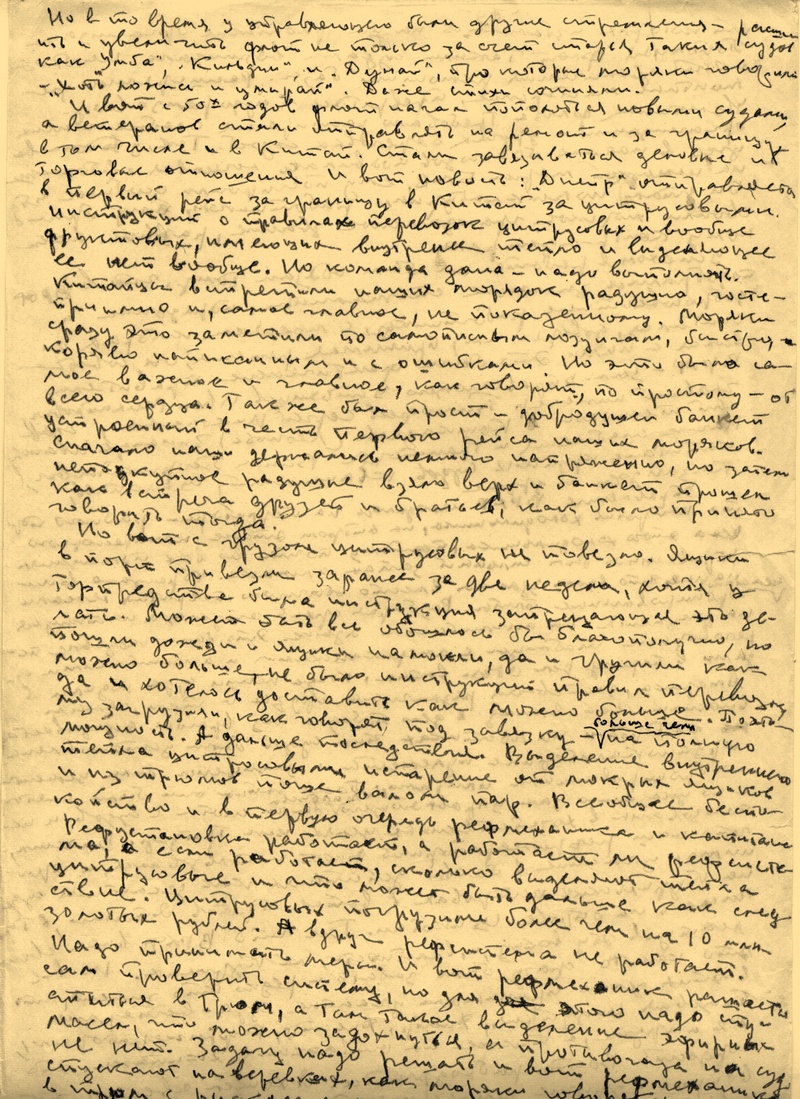 Но в то время у управляющего были другие стремления - расши
ить и увеличить флот не только за счет старья таких судов
как "Умба", "Кильдин", и "Дунай", про которые моряки говорили
- "хоть ложись и умирай". Даже стихи сочиняли.
И вот с 50х годов флот начал пополняться новыми судами,
а ветеранов стали отправлять на ремонт и за границу,
в том числе и в Китай. Стали завязываться деловые и
торговые отношения И вот новость: "Днепр" отправляется
в первый рейс за границу в Китай за цитрусовыми.
Инструкций о правилах перевозок цитрусовых и вообще
фруктовых, имеющих внутренее тепло и выделяющее
ее нет вообще. Но команда дана - надо выполнять.
Китайцы встретили наших моряков радушно, госте-
приимно и, самое главное, не показенному. Моряки
сразу это заметили по самописным лозунгам,
коряво написанным и с ошибками. Но это было са-
мое важное и главное, как говорят, по простому - от
всего сердца. Также был прост и добродушен банкет
устроенный в честь первого рейса наших моряков.
Сначало наши держались немного напряженно, но затем
неподкупное радушие взяло верх и банкет прошел
как встреча друзей и братьев, как было принято
говорить тогда.
Но вот с грузом цитрусовых не повезло. Ящики
в порт привезли заранее за две недели, хотя у
Торгпредства была инструкция запрещающая это де-
лать. Может быть все обошлось бы благополучно, но
пошли дожди и ящики намокли, да и грузили как
можно больше, не было инструкций правил перевозки
да и хотелось доставить как можно больше. Поэто-
му загрузили, как говорят, под завязку - больше чем на полную
мощность. А дальше последствия. Выделение внутреннего
тепла цитрусовыми испарение от мокрых ящиков
и из трюмов пошел валом пар. Всеобщее беспо-
койство и в первую очередь рефмеханика и капитана
Рефустановка работает, а работает ли рефсисте
ма, а если работает, сколько выделяют тепла
цитрусовые и что может быть дальше как след
ствие. Цитрусовых погрузили более чем на 10 млн
золотых рублей. А вдруг рефсистема не работает.
Надо принимать меры. И вот рефмеханик решается
сам проверить систему, но для этого надо спу-
ститься в трюм, а там такое выделение эфирных
масел, что можно задохнуться, а противогаза на суд
не нет. Задачу надо решать и вот рефмеханика
спускают на веревках, как моряки говорят
в трюм с